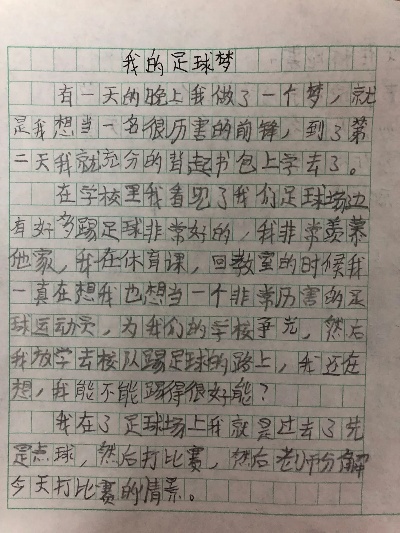 我的足球梦
有一天的晚上我做了一个梦，就
是我想当一名很历害的前锋，到了第
二天我就充分的背起书包上学去了。
在学校里我看见了我们足球场边
有好多踢足球非常好的，我非常羡慕
他家，我在体育课，回教室的时候我
一真在想我也想当一个非常历害的足
球运动员，为我们的学校争光，然后
我放学去校队踢足球的路上，我还在
想，我能不能踢得很好能？
我在了足球场上我就是过去了先
是点球，然后打比赛，然后老师分解
今天打比赛的情景。